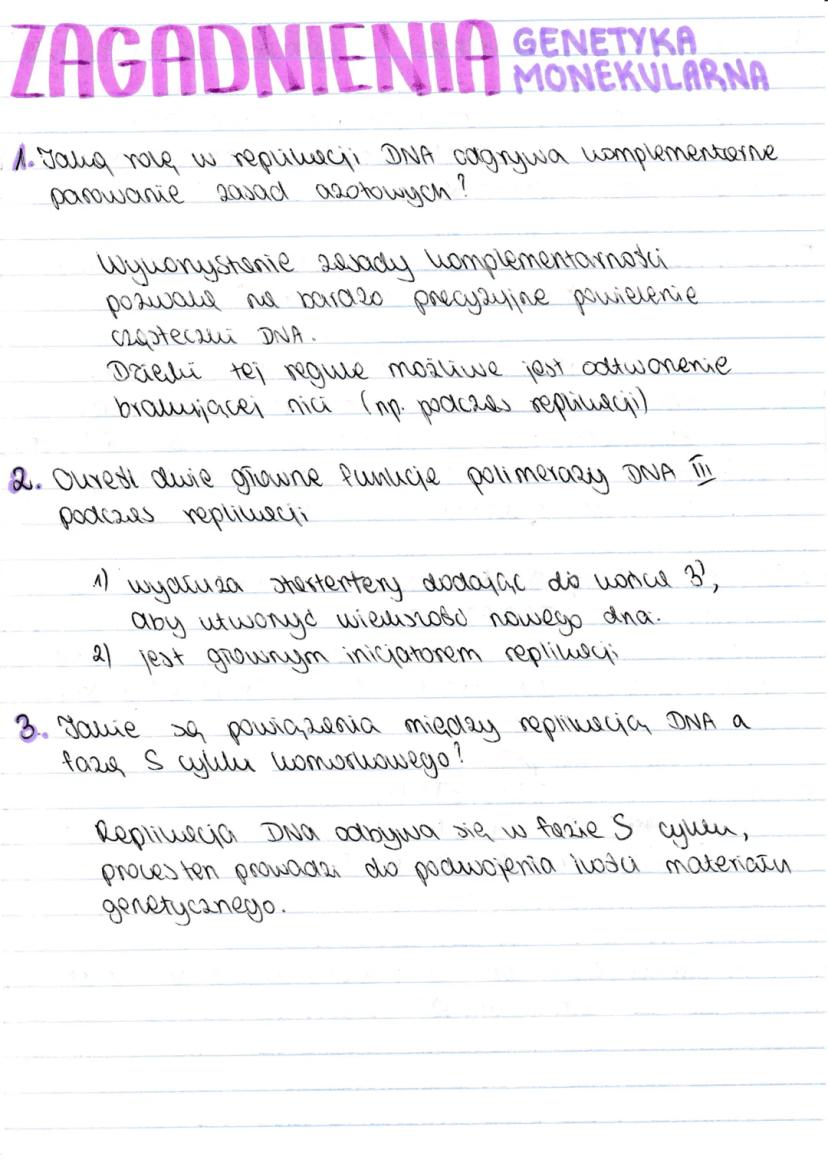 ZAGADNIENIA GENETYKA
MONEKULARNA
1. Jaką rolę w replikacji DNA odgrywa komplementarne
parowanie zasad azotowych?
Wykorzystanie zasady komplementarności
pozwala na bardzo precyzyjne powielenie
cząsteczki DNA.
Dzięki tej regule możliwe jest odtworzenie
brakującej nici (np. podczas replikacji)
2. Określ dwie główne funkcje polimerazy DNA III
podczas replikacji
1) wydłuża stertertery dodając do końca 3',
aby utworzyć większość nowego dna.
2) jest głównym inicjatorem replikacji
3. Jakie są powiązania między replikacją DNA a
fazą S cyklu komórkowego?
Replikacja DNA odbywa się w fazie S cyklu,
proces ten prowadzi do podwojenia ilości materiału
genetycznego.